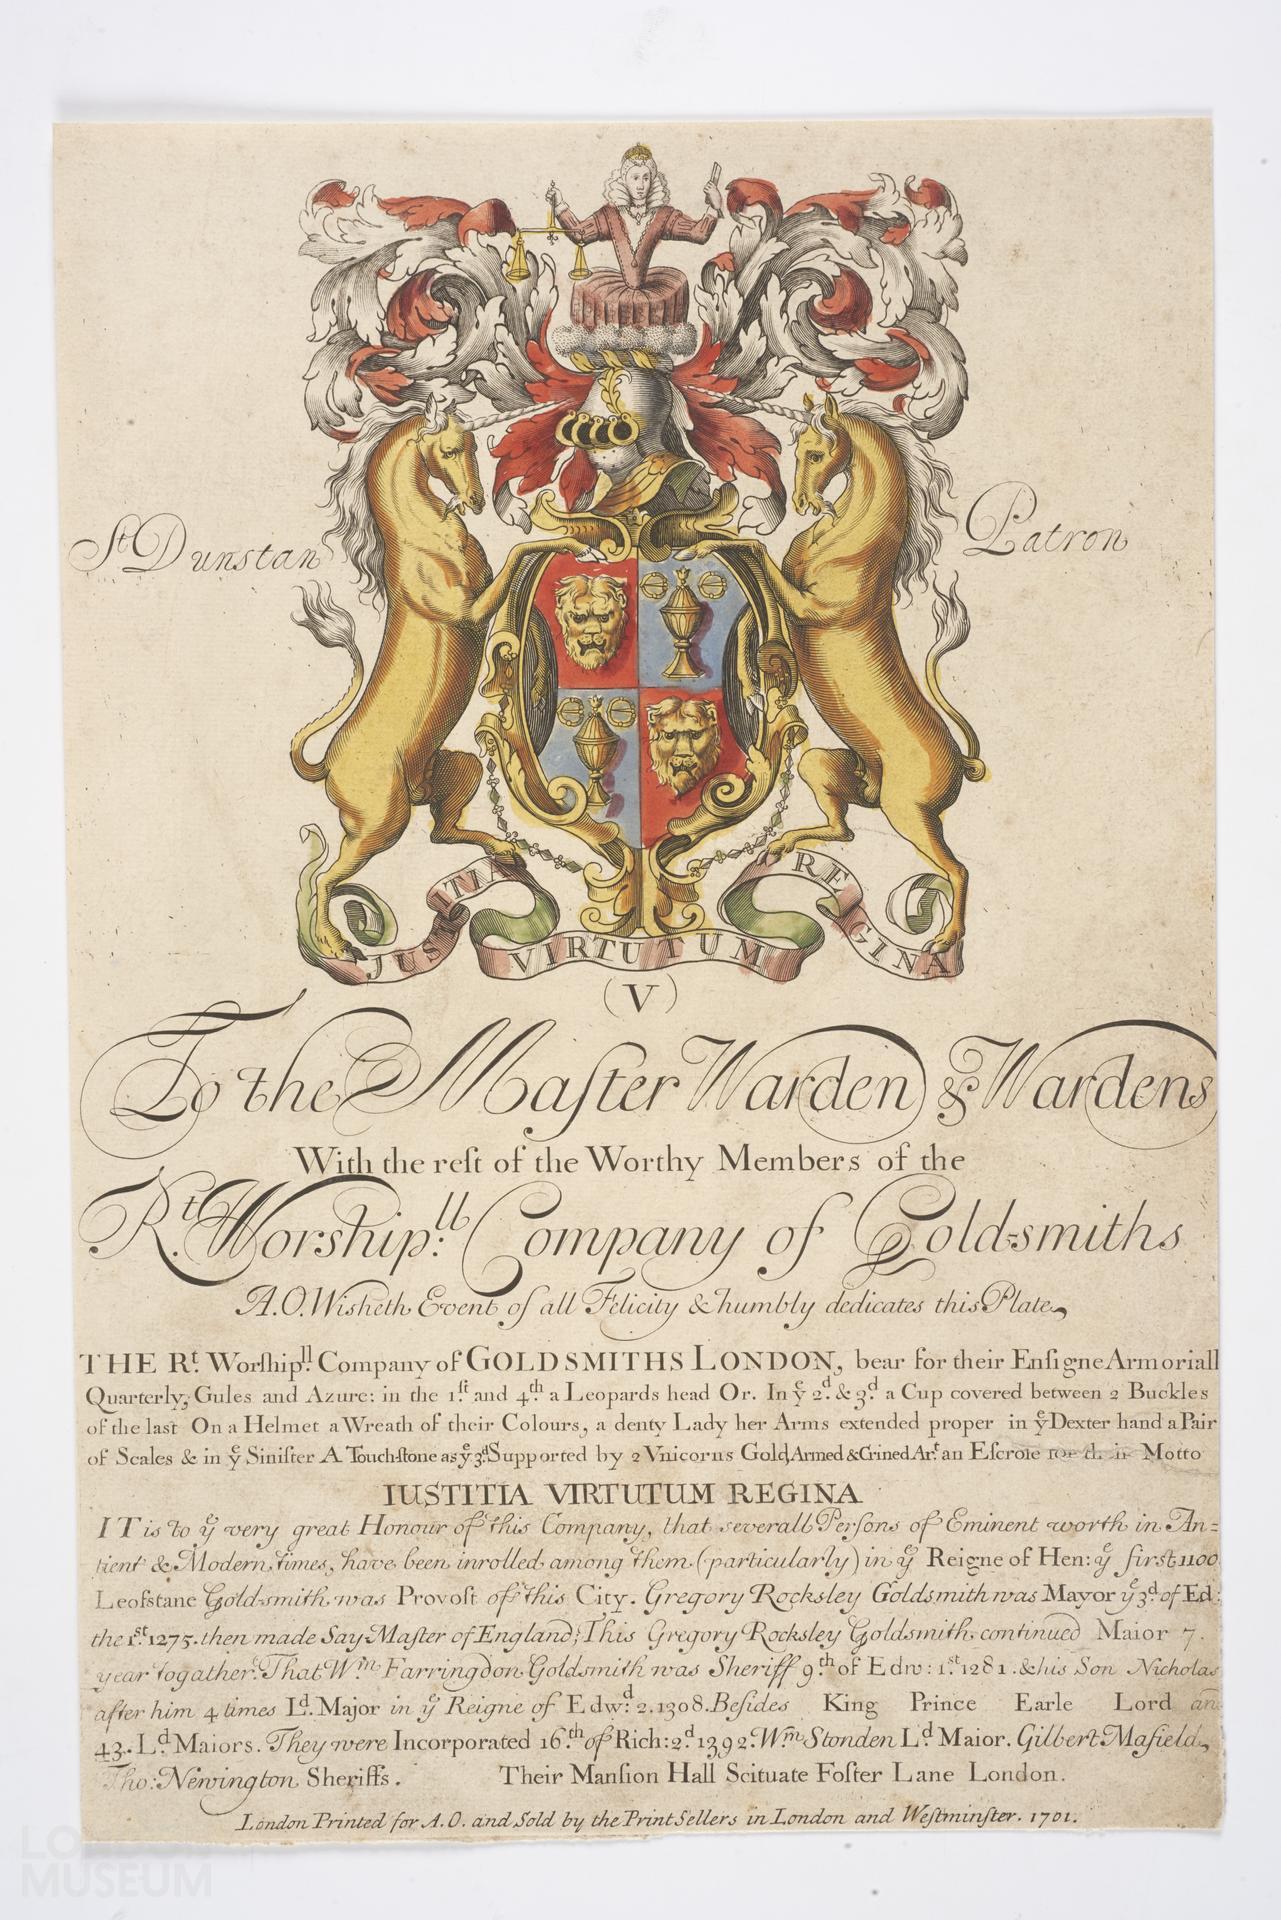 St Dunstan Patron
JUSTITIA VIRTUTUM REGINA
(V)
To the Maſter Warden & Wardens
With the reſt of the Worthy Members of the
Rt. Worship:ll Company of Gold-smiths
A.O. Wisheth Event of all Felicity & humbly dedicates this Plate
THE Rt. Worſhipll: Company of GOLDSMITHS LONDON, bear for their Enſigne Armoriall
Quarterly, Gules and Azure: in the 1.ſt and 4.th a Leopards head Or. In ye 2.d & 3.d a Cup covered between 2 Buckles
of the last On a Helmet a Wreath of their Colours, a denty Lady her Arms extended proper in ye Dexter hand a Pair
of Scales & in ye Siniſter A Touch-ſtone as ye 3.d Supported by 2 Vnicorns Gold, Armed & Crined Ar.t an Eſcrole for their Motto
IUSTITIA VIRTUTUM REGINA
IT is to ye very great Honour of this Company, that severall Perſons of Eminent worth in An=
tient & Modern times, have been inrolled among them (particularly) in ye Reigne of Hen: ye first 1100
Leofstane Gold-smith was Provoſt of this City. Gregory Rocksley Goldsmith was Mayor ye 3.d of Ed:
the 1.st 1275. then made Say-Maſter of England; This Gregory Rocksley Goldsmith continued Maior 7.
year togather. That Wm Farringdon Goldsmith was Sheriff 9.th of Edw: 1.st 1281. & his Son Nicholas
after him 4 times L.d Major in ye Reigne of Edw:d 2. 1308. Beſides King Prince Earle Lord an
43. L.d Maiors. They were Incorporated 16.th of Rich: 2.d 1392. Wm Stonden L.d Maior. Gilbert Maſield,
Tho: Newington Sheriffs. Their Manſion Hall Scituate Foſter Lane London.
London Printed for A.O. and Sold by the Print Sellers in London and Weſtminſter. 1701.
LONDON
MUSEUM